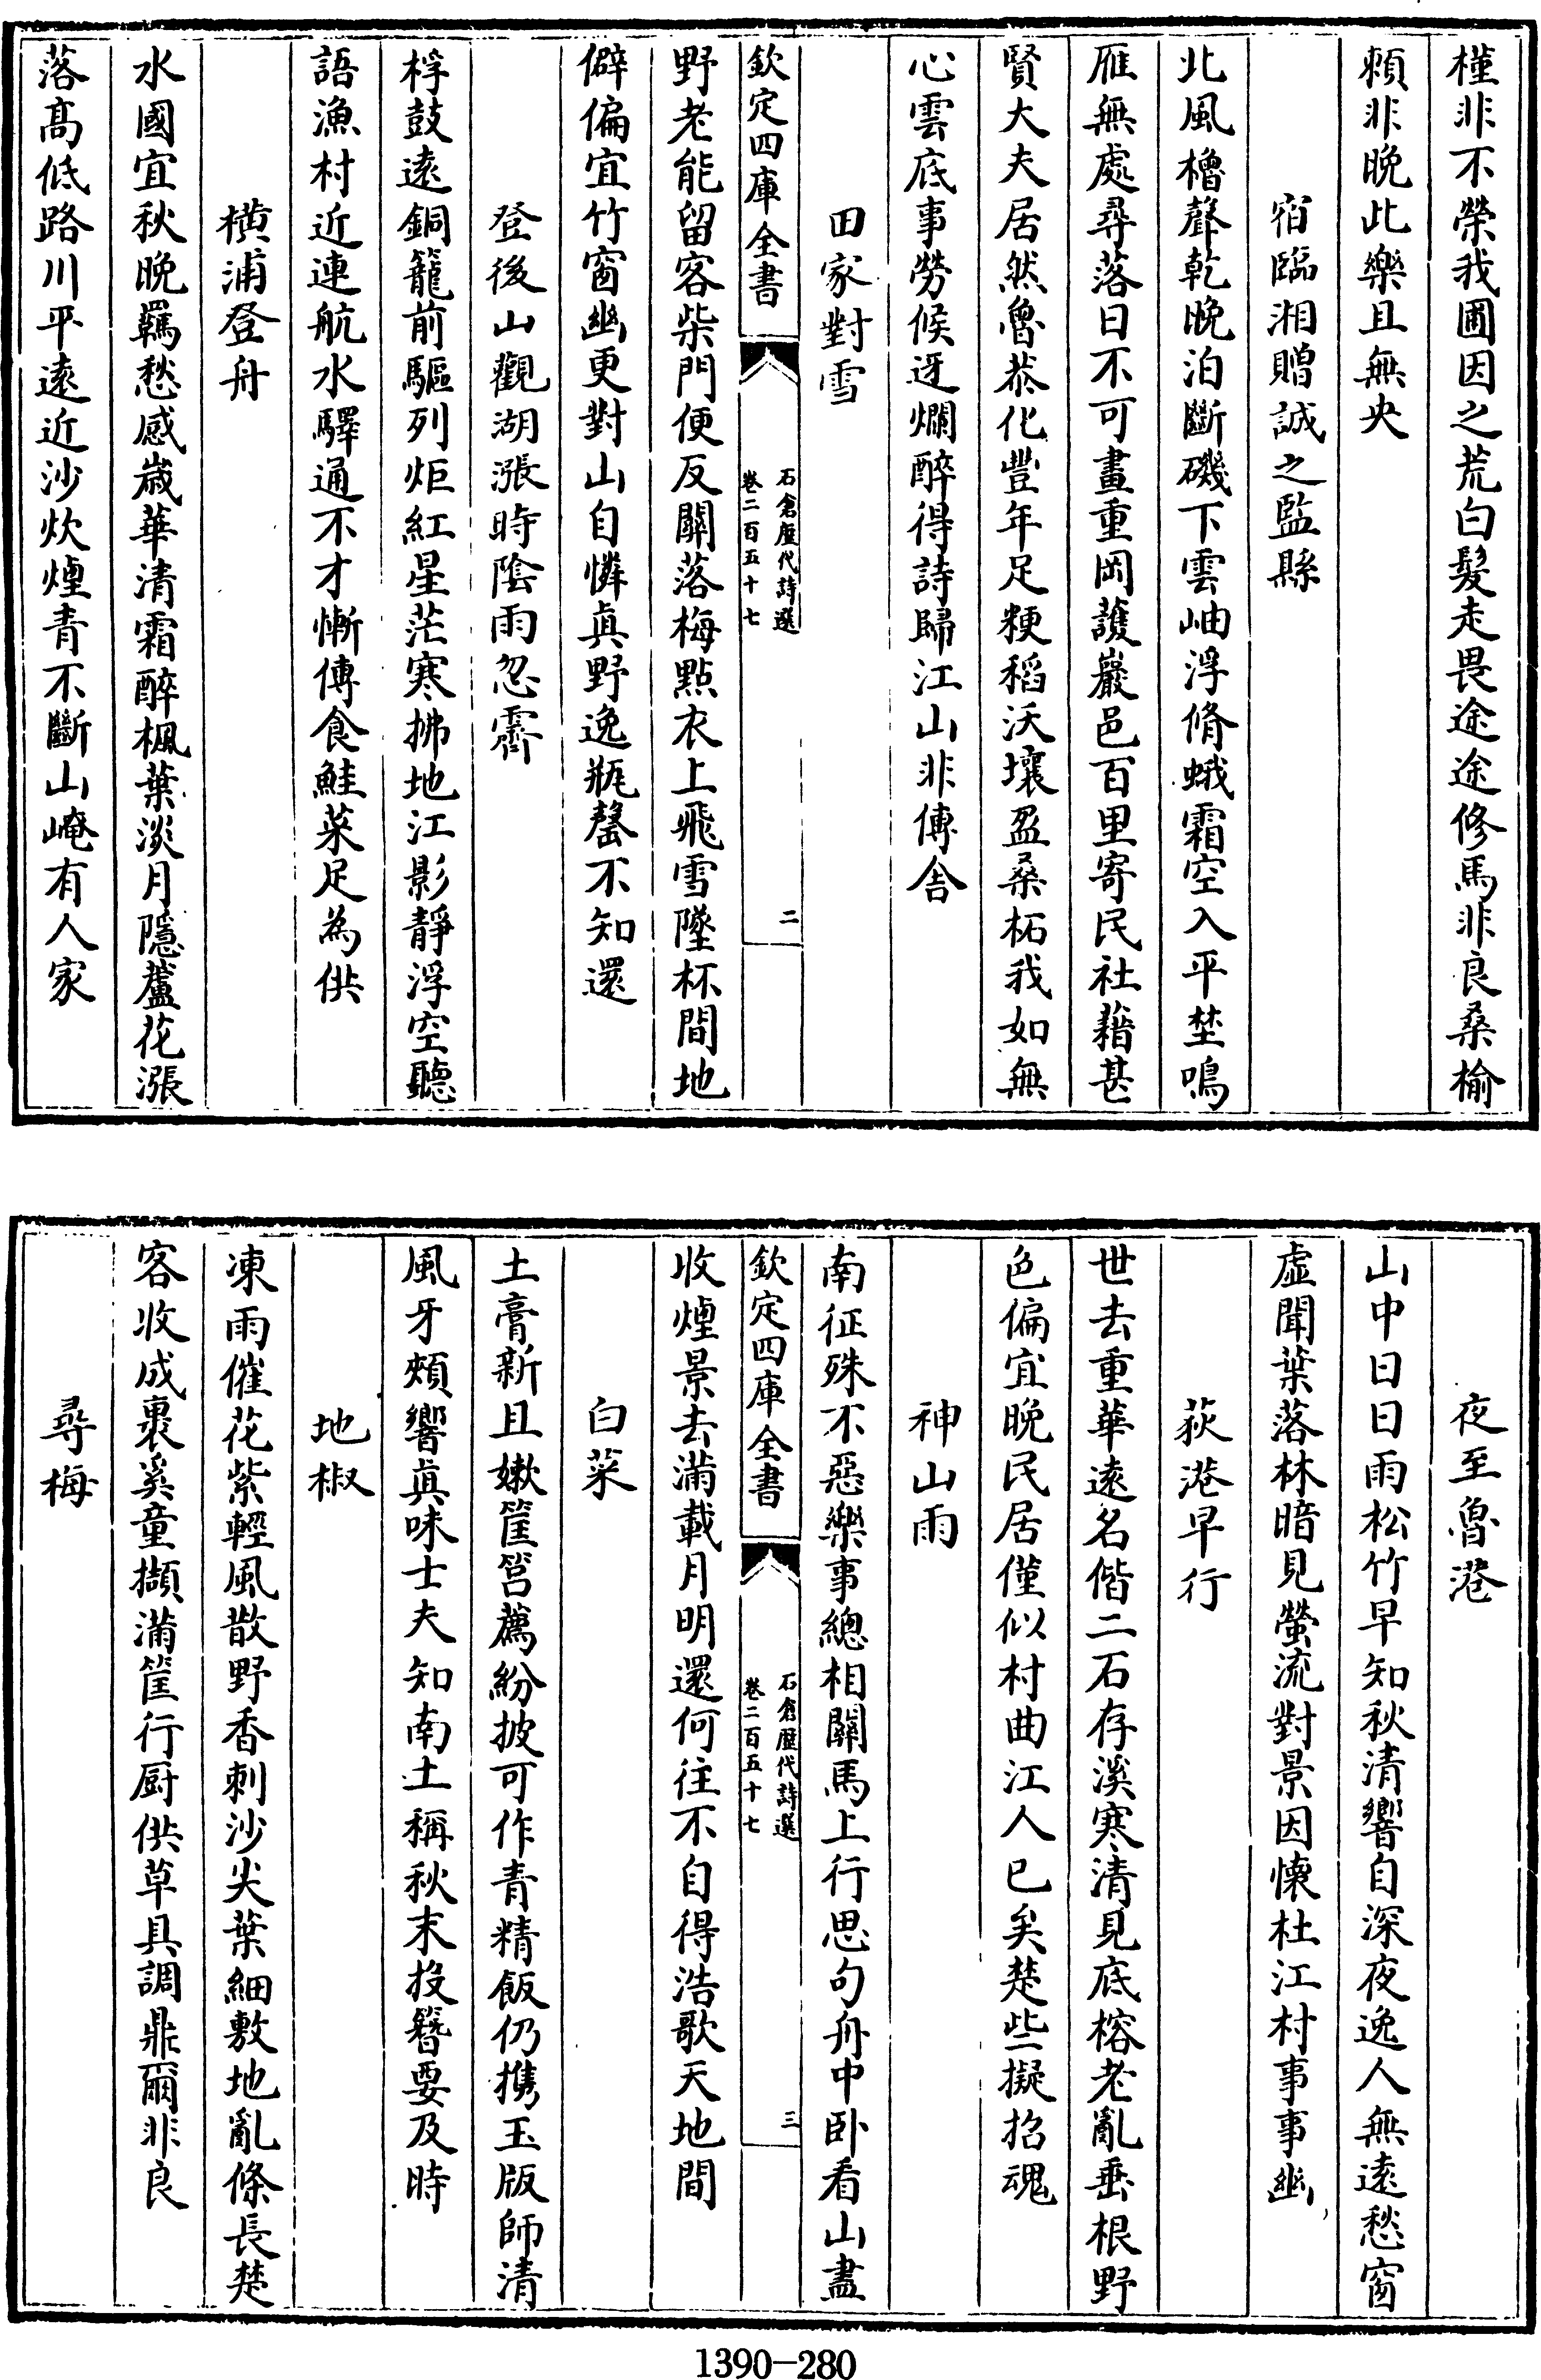 槿非不榮我圃因之荒白髮走畏途途修馬非良桑榆
頼非晚此樂且無央
宿臨湘贈誠之監縣
北風櫓聲乾晚泊斷磯下雲岫浮脩蛾霜空入平埜鳴
雁無處尋落日不可畫重岡護巖邑百里寄民社藉甚
賢大夫居然魯恭化豐年足粳稻沃壤盈桑柘我如無
心雲底事勞候迓爛醉得詩歸江山非傳舍
田家對雪
欽定四庫全書
石倉歷代詩選
卷二百五十七
二
野老能留客柴門便反關落梅點衣上飛雪墜杯間地
僻偏宜竹窗幽更對山自憐真野逸瓶罄不知還
登後山觀湖漲時陰雨忽霽
桴鼓遠銅籠前驅列炬紅星茫寒拂地江影靜浮空聽
語漁村近連航水驛通不才慚傳食鮭菜足為供
橫浦登舟
水國宜秋晚羈愁感歲華清霜醉楓葉淡月隱蘆花漲
落高低路川平遠近沙炊煙青不斷山崦有人家
夜至魯港
山中日日雨松竹早知秋清響自深夜逸人無遠愁窗
虛聞葉落林暗見螢流對景因懷杜江村事事幽
荻港早行
世去重華遠名偕二石存溪寒清見底榕老亂垂根野
色偏宜晚民居僅似村曲江人已矣楚些擬招魂
神山雨
南征殊不惡樂事總相關馬上行思句舟中卧看山盡
欽定四庫全書
石倉歷代詩選
卷二百五十七
三
收煙景去滿載月明還何往不自得浩歌天地間
白菜
土膏新且嫩筐筥薦紛披可作青精飯仍携玉版師清
風牙頰響真味士夫知南土稱秋末投簪要及時
地椒
凍雨催花紫輕風散野香刺沙尖葉細敷地亂條長楚
客收成裹奚童擷滿筐行厨供草具調鼎爾非良
尋梅
1390-280